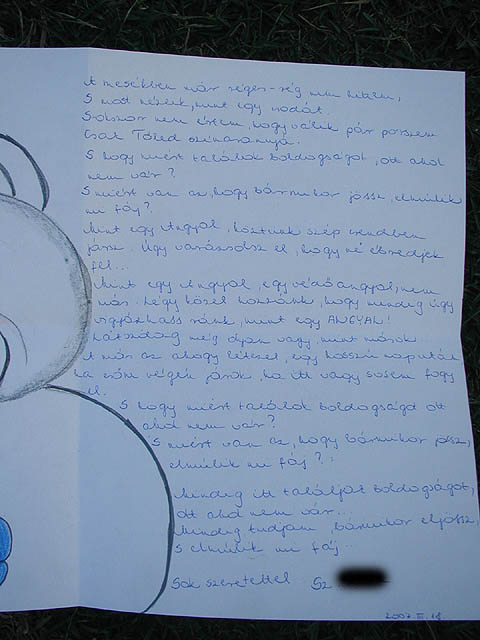 A mesékben már réges-rég nem hittem,
S most nézlek, mint egy csodát.
Sokszor nem értem, hogy válik pár percem
Csak Tőled színarannyá.
S hogy miért találok boldogságot, ott ahol
nem vár?
S miért van az, hogy bármikor jössz, elmúlik
mi fáj?
Mint egy Angyal, köztünk szép csendben
jársz. Úgy varázsolsz el, hogy ne ébredjek
fel...
Mint egy Angyal, egy védőangyal, nem
más. Légy közel hozzánk, hogy mindig úgy
vigyázhass ránk, mint egy ANGYAL!
Látszólag még olyan vagy, mint mások
S már az ahogy létezel, egy hosszú nap után
ha csőre végén járok, ha itt vagy sosem fogy
el.
S hogy miért találok boldogságot ott
ahol nem vár?
S miért van az, hogy bármikor jössz,
elmúlik mi fáj?
Mindig itt találjat boldogságot,
ott ahol nem vár...
Mindig tudjam, bármikor eljössz,
S elmúlik mi fáj...
Sok szeretettel Sz
2007. III. 18